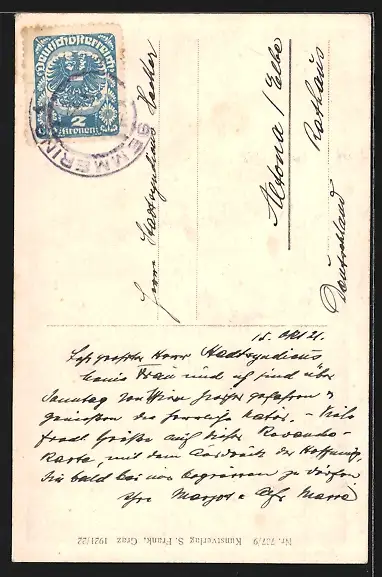 Deutschösterreich
2
Kronen
SEMMERING
Herrn Stadtsyndikus
Altona / Elbe
Rathaus
Deutschland
15. Okt 21.
Sehr geehrter Herr Stadtsyndikus
meine Frau und ich sind über
Sonntag von Wien
geniessen die herrliche Natur. – Viele
Grüße auf dieser
Karte, mit dem Ausdruck der Hoffnung,
Sie bald bei uns begrüssen zu dürfen
Ihre Margot
Nr. 737/9 Kunstverlag S. Frank, Graz 1921/22